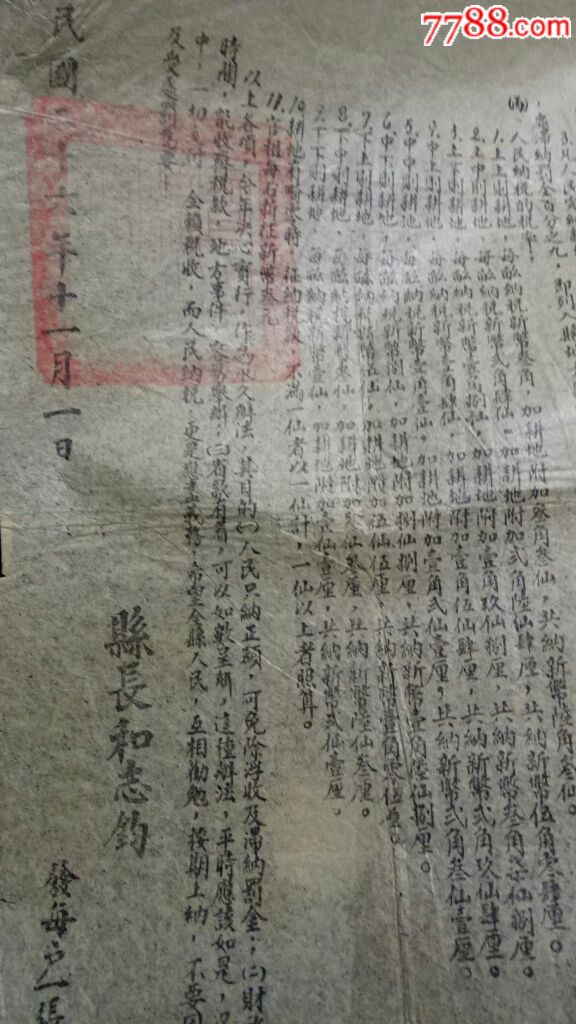 7788.com
3.凡人民
應滯納罰金百分之九,即列入縣地
(丙) 人民納稅的稅率:
1.上上則耕地,每畝納稅新幣叁角,加耕地附加叁角叁仙,共納新幣陸角叁仙。
2.上中則耕地,每畝納稅新幣弍角肆仙,加耕地附加弍角陸仙肆厘,共納新幣伍角零肆厘。
3.上下則耕地,每畝納稅新幣壹角捌仙,加耕地附加壹角玖仙捌厘,共納新幣叁角柒仙捌厘。
4.中上則耕地,每畝納稅新幣壹角肆仙,加耕地附加壹角伍仙肆厘,共納新幣弍角玖仙肆厘。
5.中中則耕地,每畝納稅新幣壹角壹仙,加耕地附加壹角弍仙壹厘,共納新幣弍角叁仙壹厘。
6.中下則耕地,每畝納稅新幣捌仙,加耕地附加捌仙捌厘,共納新幣壹角陸仙捌厘。
7.下上則耕地,每畝納稅新幣伍仙,加耕地附加伍仙伍厘,共納新幣壹角零伍厘。
8.下中則耕地,每畝納稅新幣叁仙,加耕地附加叁仙叁厘,共納新幣陸仙叁厘。
9.下下則耕地,每畝納稅新幣壹仙,加耕地附加壹仙壹厘,共納新幣弍仙壹厘。
10.耕地有畸零時,征納稅款,不滿一仙者以一仙計,一仙以上者照算。
11.官租每石折征新幣叁元
以上各項,今年决心實行,作為永久辦法,其目的(一)人民只納正額,可免除浮收及滯納罰金;(二)財政
時間,能收得稅款,地方事件,容易舉辦,(三)省款有着,可以如數呈解,這種辦法,平時應該如是,
中,一切 金額稅收,而人民納稅,更是應盡義務,希望全縣人民,互相勸勉,按期上納,不要因
及
縣長和志鈞
民國二十六年十一月一日
發每户一張